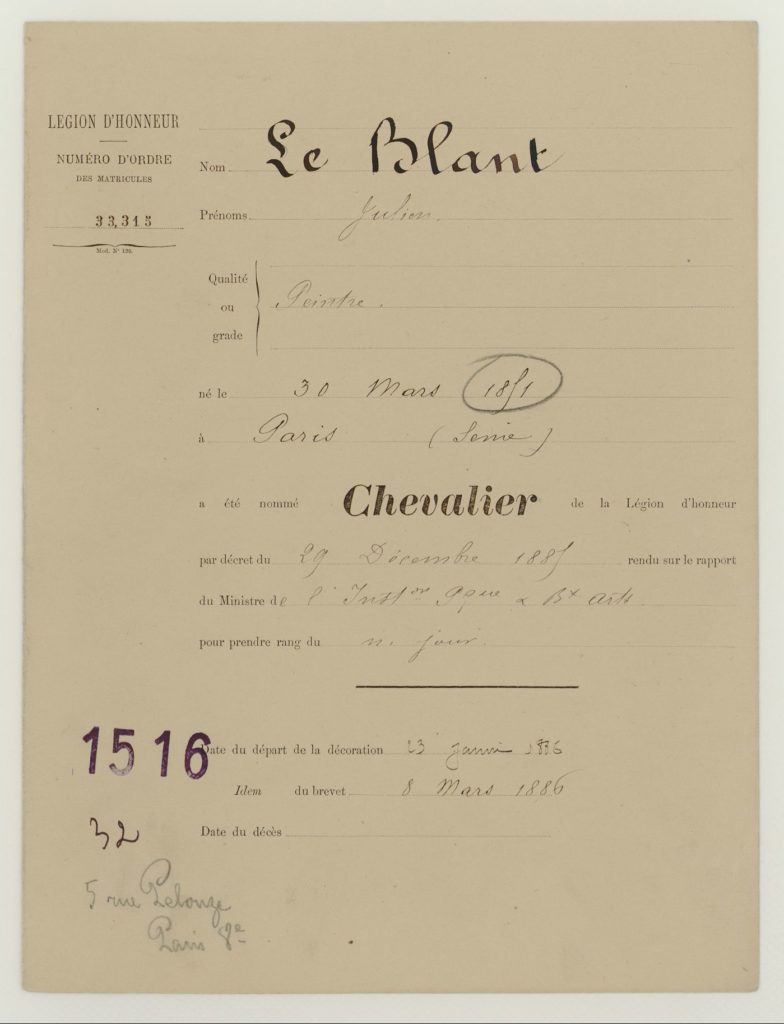 LEGION D'HONNEUR
NUMÉRO D'ORDRE
DES MATRICULES
33,315
Mod. N° 120.
Nom Le Blant
Prénoms Julien.
Qualité
ou
grade
Peintre.
né le 30 Mars 1851
à Paris (Seine)
a été nommé Chevalier de la Légion d'honneur
par décret du 29 Décembre 1885 rendu sur le rapport
du Ministre de l'Inston Pque & Bx arts
pour prendre rang du m. jour.
Date du départ de la décoration 23 Janvier 1886
Idem du brevet 8 Mars 1886
Date du décès
1516
32
5 rue Pelouze
Paris 8e